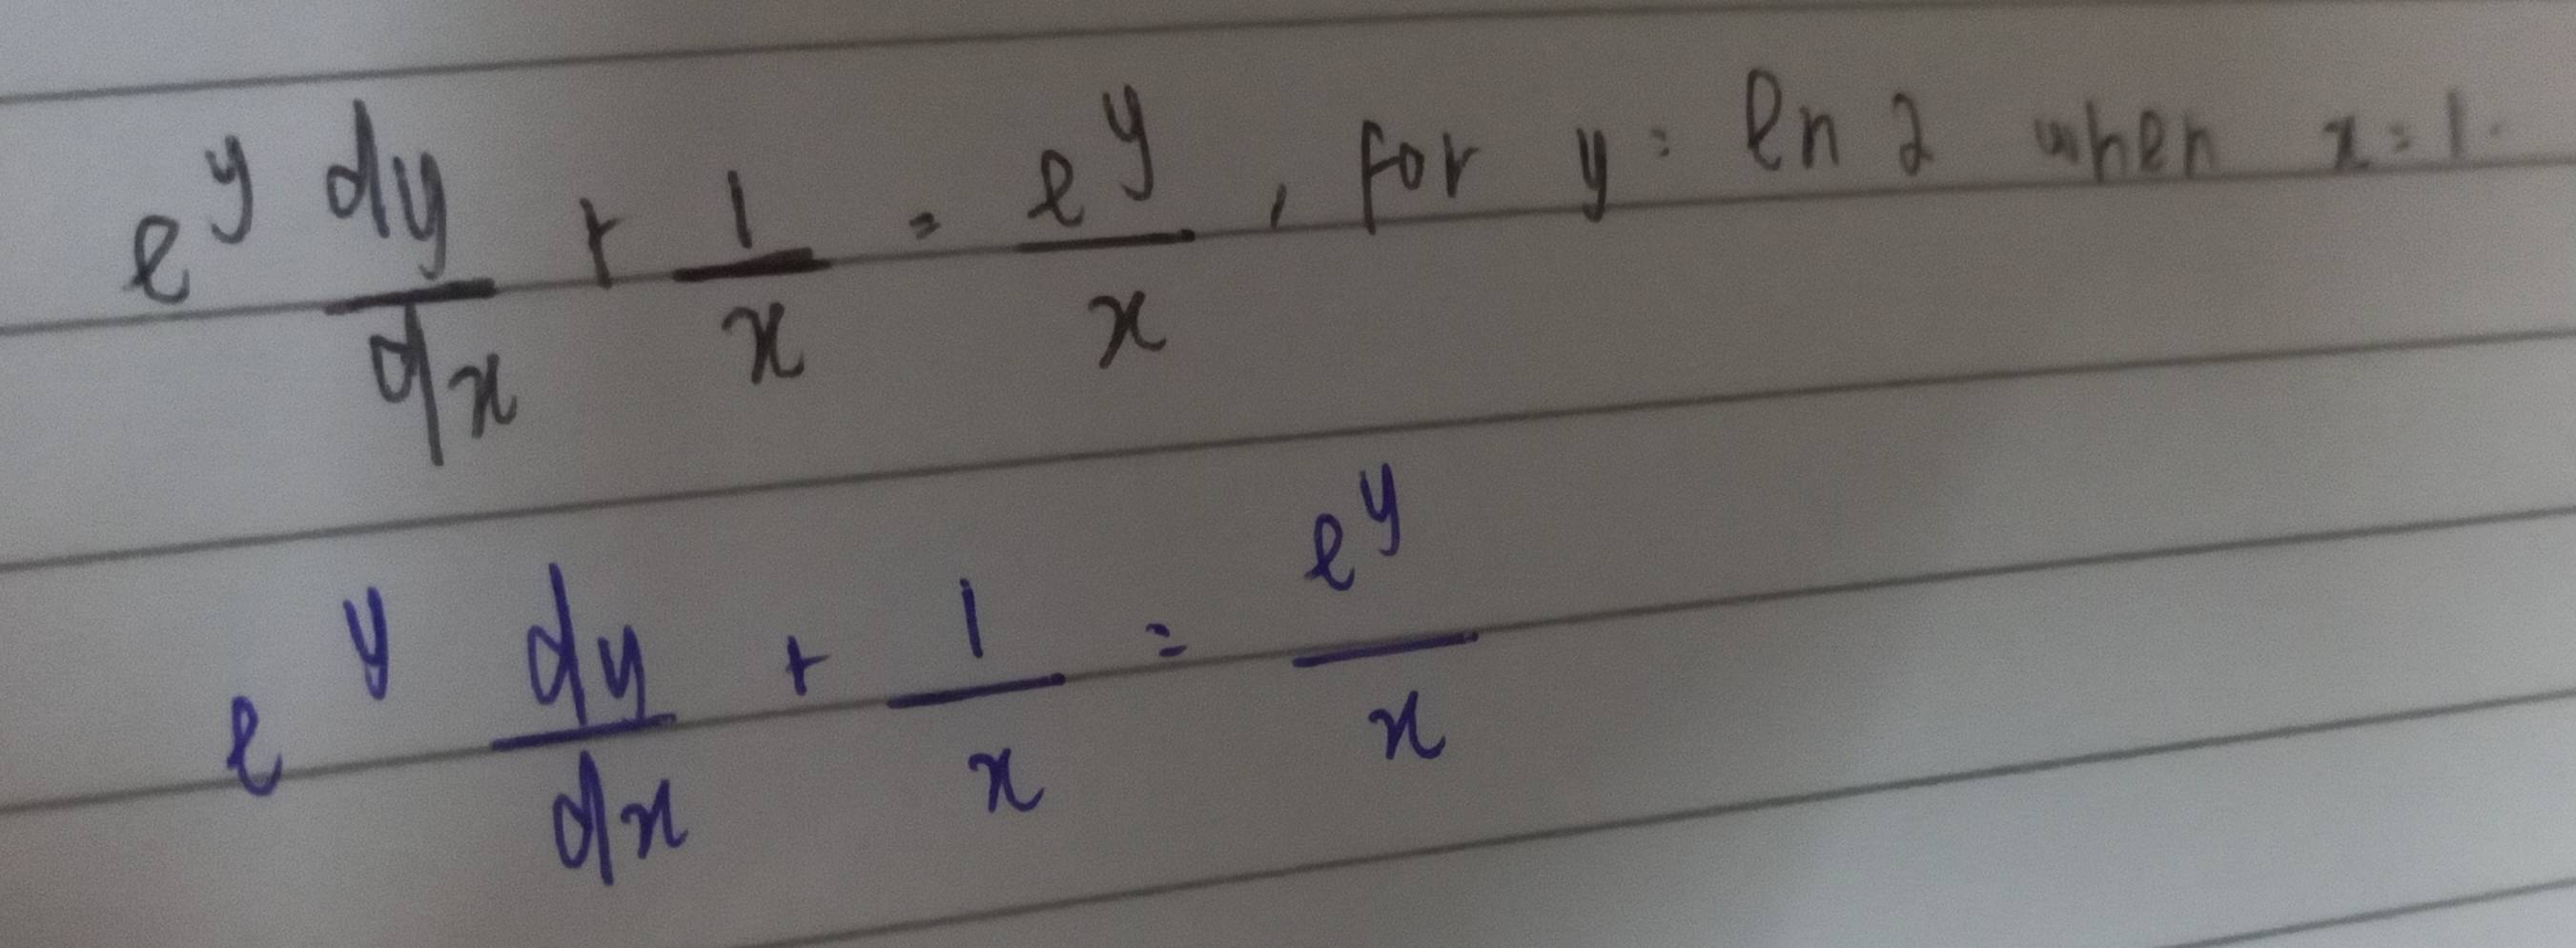 e^y dy/dx + 1/x = e^y/x , for y = ln 2 when x = 1.
e^y dy/dx + 1/x = e^y/x